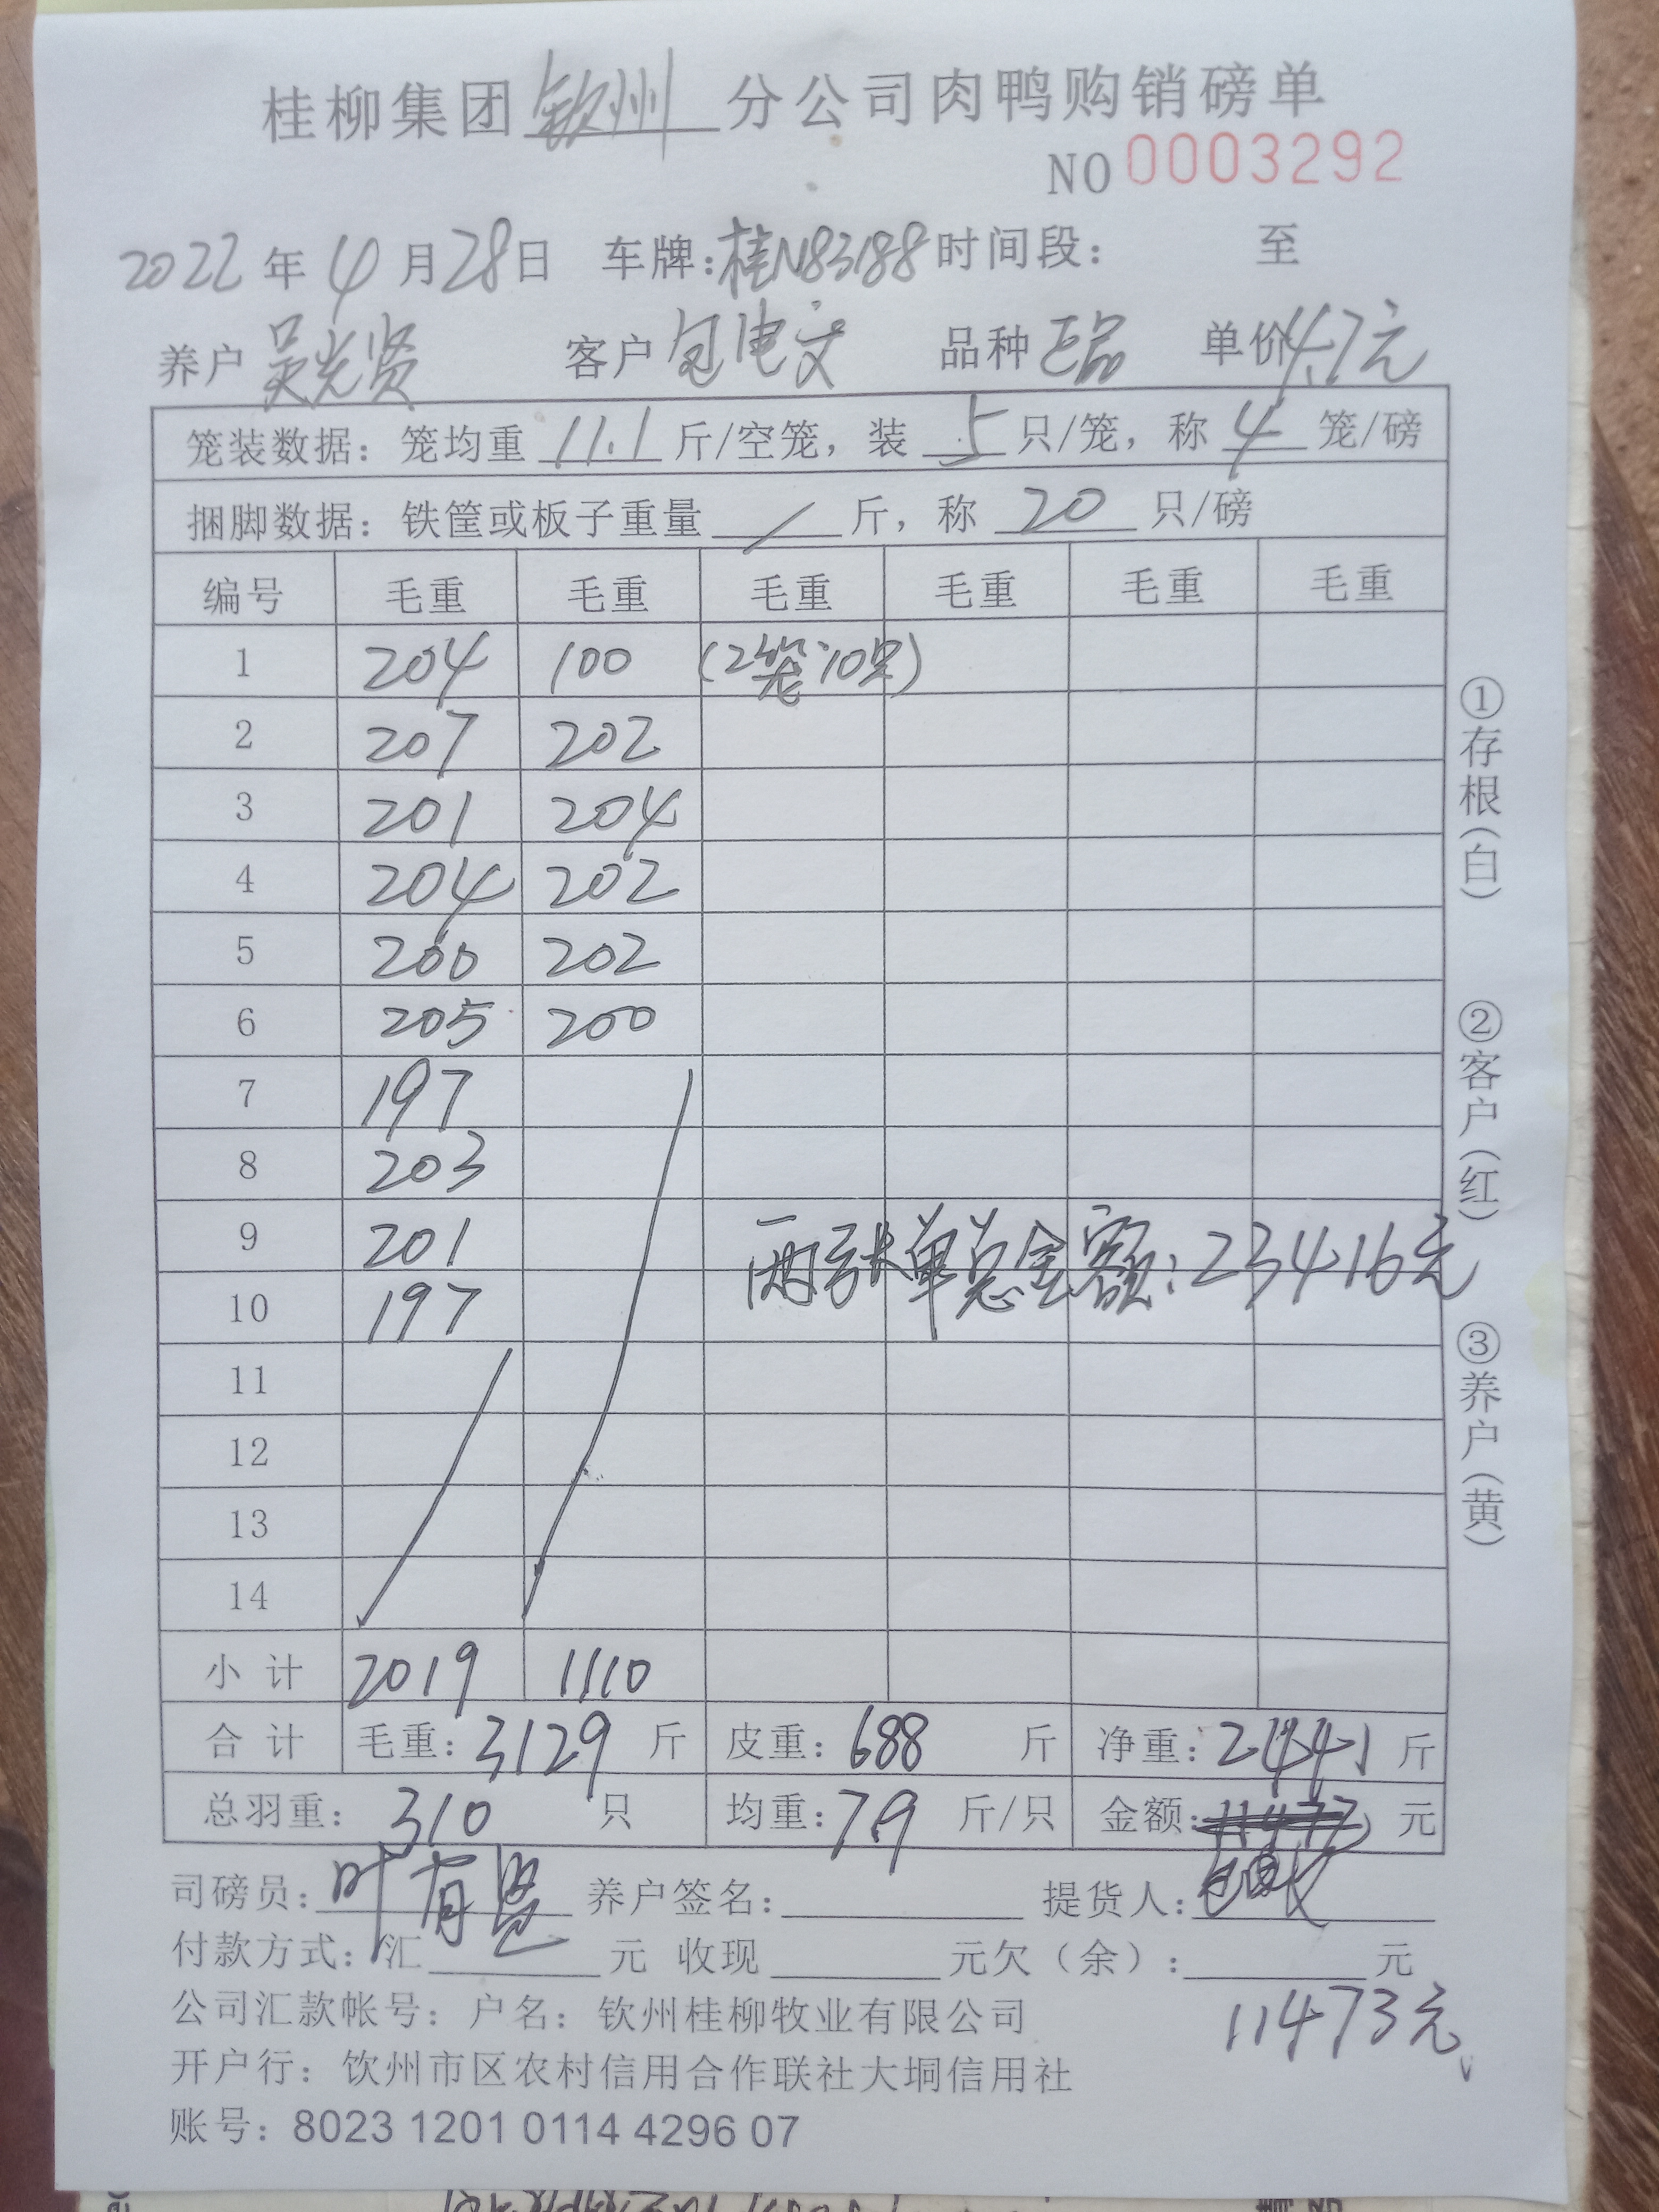 桂柳集团 钦州 分公司肉鸭购销磅单
NO 0003292
2022 年 4 月 28 日 车牌:桂N83188 时间段： 至
养户 吴光贤 客户 包电文 品种 正品 单价 4.7元
笼装数据：笼均重 11.1 斤/空笼，装 5 只/笼，称 4 笼/磅
捆脚数据：铁筐或板子重量 / 斤，称 20 只/磅
编号 毛重 毛重 毛重 毛重 毛重 毛重
1 204 100 (2笼10只)
2 207 202
3 201 204
4 204 202
5 200 202
6 205 200
7 197
8 203
9 201
两张单总金额:23416元
10 197
11
12
13
14
小 计 2019 1110
合 计 毛重：3129 斤 皮重：688 斤 净重：2441 斤
总羽重： 310 只 均重：7.9 斤/只 金额： 元
司磅员：叶有 养户签名： 提货人：
付款方式：汇 元 收现 元欠（余）： 元
11473元
公司汇款帐号：户名：钦州桂柳牧业有限公司
开户行：钦州市区农村信用合作联社大垌信用社
账号：8023 1201 0114 4296 07
①存根(白)
②客户(红)
③养户(黄)